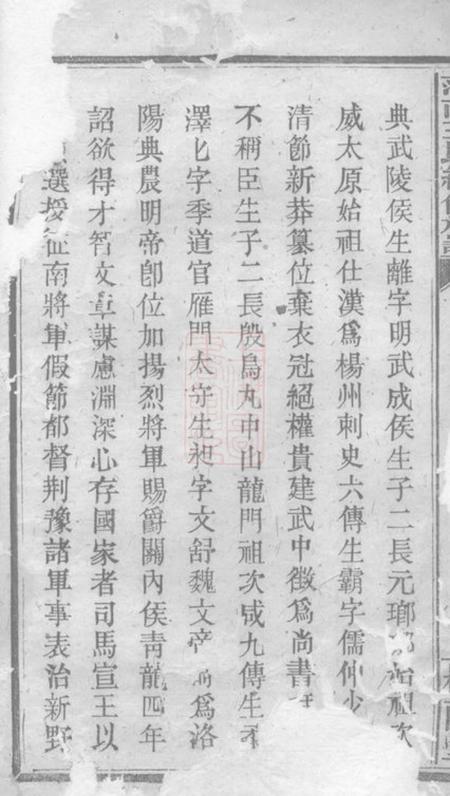 典武陵侯生離字明武成侯生子二長元瑯始祖次
威太原始祖仕漢爲楊州刺史六傳生霸字儒仲少
清節新莽篡位棄衣冠絕權貴建武中徵爲尚書
不稱臣生子二長殷烏丸中山龍門祖次咸九傳生
澤匕字季道官雁門太守生昶字文舒魏文帝爲洛
陽典農明帝卽位加揚烈將軍賜爵關內侯靑龍四年
詔欲得才智文章謀慮淵深心存國家者司馬宣王以
選授征南將軍假節都督荆豫諸軍事表治新野